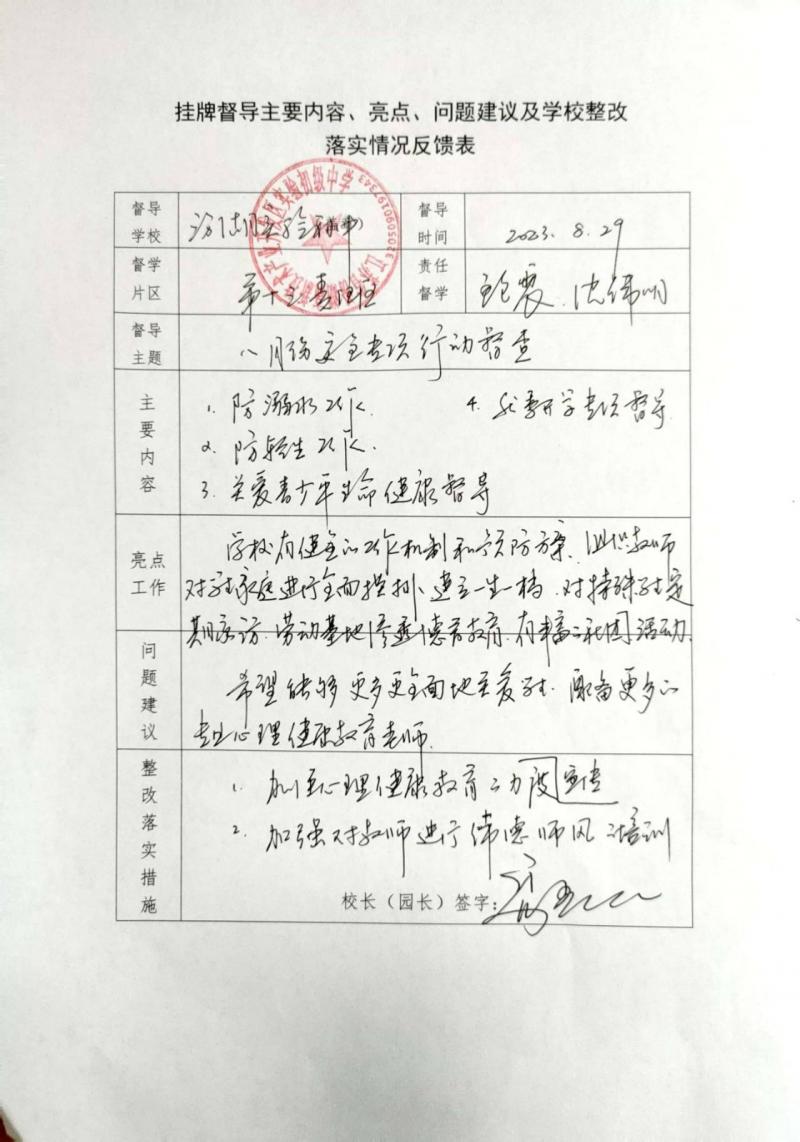 挂牌督导主要内容、亮点、问题建议及学校整改
落实情况反馈表
督导学校
汾湖实验初中
督导时间
2023.8.29
督学片区
第十三责任区
责任督学
震、沈伟明
督导主题
八月份安全专项行动督查
主要内容
1. 防溺水工作
4. 秋季开学专项督导
2. 防轻生工作
3. 关爱青少年生命健康督导
亮点工作
学校有健全的工作机制和预防方案、组织教师
对学生家庭进行全面摸排、建立一生一档、对特殊学生定
期家访、劳动基地渗透德育教育、有丰富的社团活动
问题建议
希望能够更多更全面地关爱学生、配备更多的
专业心理健康教育老师
整改落实措施
1. 加强心理健康教育的力度宣传
2. 加强对教师进行师德师风的培训
校长（园长）签字：
实验初级中学
3205090197343